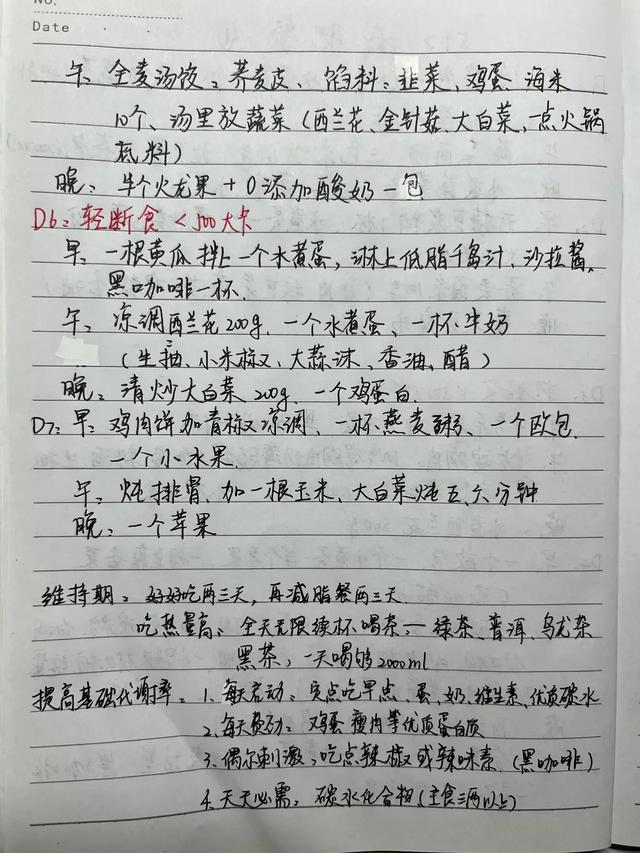 NO.
Date
午：全麦汤饺：荞麦皮、馅料：韭菜、鸡蛋、海米
10个、汤里放蔬菜（西兰花、金针菇、大白菜、一点火锅
底料）
晚：半个火龙果+0添加酸奶一包
D6：轻断食<500大卡
早：一根黄瓜拌上一个水煮蛋，淋上低脂千岛汁、沙拉酱，
黑咖啡一杯.
午：凉调西兰花200g.一个水煮蛋、一杯牛奶
（生抽、小米椒、大蒜沫、香油、醋）
晚：清炒大白菜200g.一个鸡蛋白.
D7：早：鸡肉饼加青椒凉调、一杯燕麦粥、一个欧包.
一个小水果.
午：炖排骨，加一根玉米，大白菜炖五、六分钟
晚：一个苹果
维持期：好好吃两三天，再减脂餐两三天.
吃热量高：全天无限续杯喝茶，—绿茶、普洱、乌龙茶
黑茶，一天喝够2000ml
提高基础代谢率：1.每天启动：定点吃早点、蛋、奶、维生素、优质碳水
2.每天费劲：鸡蛋 瘦肉等优质蛋白质
3.偶尔刺激：吃点辣椒或辣味素.（黑咖啡）
4.天天必需：碳水化合物（主食三两以上）